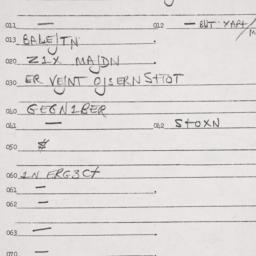 011 — 012 — BUT YAPI/
013 BALEJTN
020 ZIX MAJDN
030 ER VEJNT OJSERN STTOT
040 GEGNIBER
061 — 062 STOXN
050 $
060 IN ERG3CT
061 —
062 —
063 —
070 —